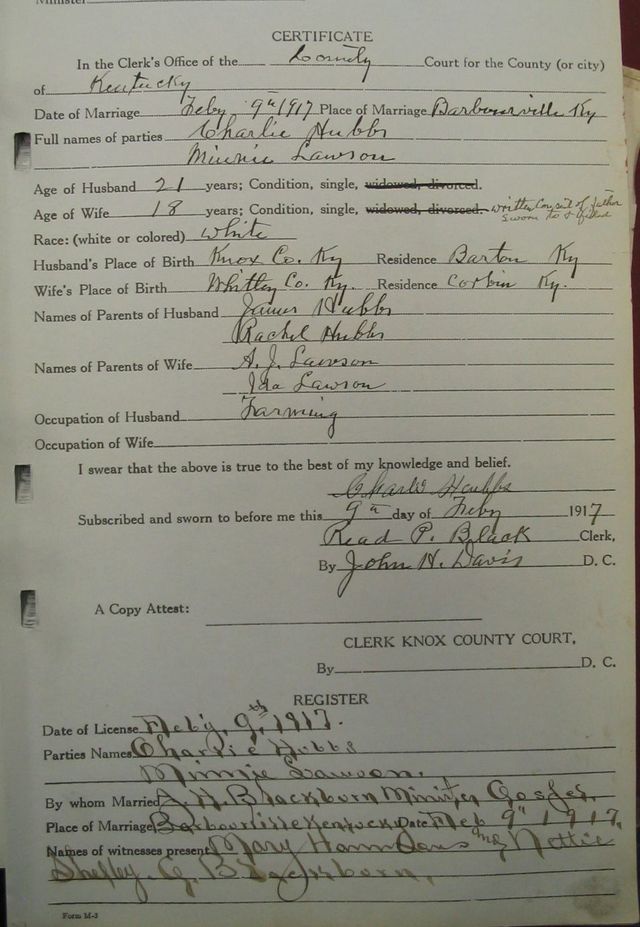 Minister
CERTIFICATE
In the Clerk's Office of the County Court for the County (or city)
of Kentucky
Date of Marriage Feby 9th 1917 Place of Marriage Barbourville Ky
Full names of parties Charlie Hubbs
Minnie Lawson
Age of Husband 21 years; Condition, single, widowed, divorced.
Age of Wife 18 years; Condition, single, widowed, divorced. written Consent of father
sworn to & filed
Race: (white or colored) White
Husband's Place of Birth Knox Co. Ky Residence Barton Ky
Wife's Place of Birth Whitley Co. Ky. Residence Corbin Ky.
Names of Parents of Husband James Hubbs
Rachel Hubbs
Names of Parents of Wife A. J. Lawson
Ida Lawson
Occupation of Husband Farming
Occupation of Wife
I swear that the above is true to the best of my knowledge and belief.
Charlie Hubbs
Subscribed and sworn to before me this 9th day of Feby 1917
Read P. Black Clerk,
By John H. Davis D. C.
A Copy Attest:
CLERK KNOX COUNTY COURT,
By D. C.
REGISTER
Date of License Feb'y, 9th, 1917.
Parties Names Charlie Hubbs
Minnie Lawson.
By whom Married A. H. Blackburn Minister Gospel,
Place of Marriage Barbourville Kentucky Date Feb 9th 1917
Names of witnesses present Mary Hammons and Nettie
Shelby. G. Blackburn,
Form M-3